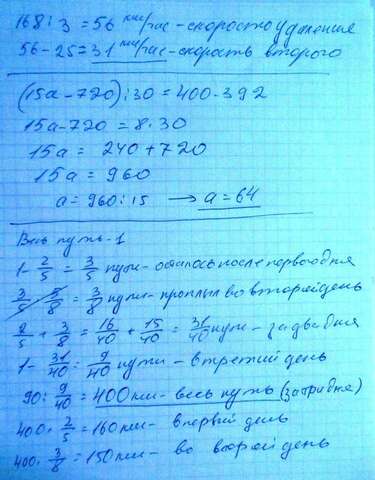 168 : 3 = 56 км/час - скорость удаления
56 - 25 = 31 км/час - скорость второго
(15a - 720) : 30 = 400 - 392
15a - 720 = 8 · 30
15a = 240 + 720
15a = 960
a = 960 : 15 → a = 64
Весь путь - 1
1 - 2/5 = 3/5 пути - осталось после первого дня
3/5 · 5/8 = 3/8 пути - проплыл во второй день
2/5 + 3/8 = 16/40 + 15/40 = 31/40 пути - за два дня
1 - 31/40 = 9/40 пути - в третий день
90 : 9/40 = 400 км - весь путь (за три дня)
400 · 2/5 = 160 км - в первый день
400 · 3/8 = 150 км - во второй день